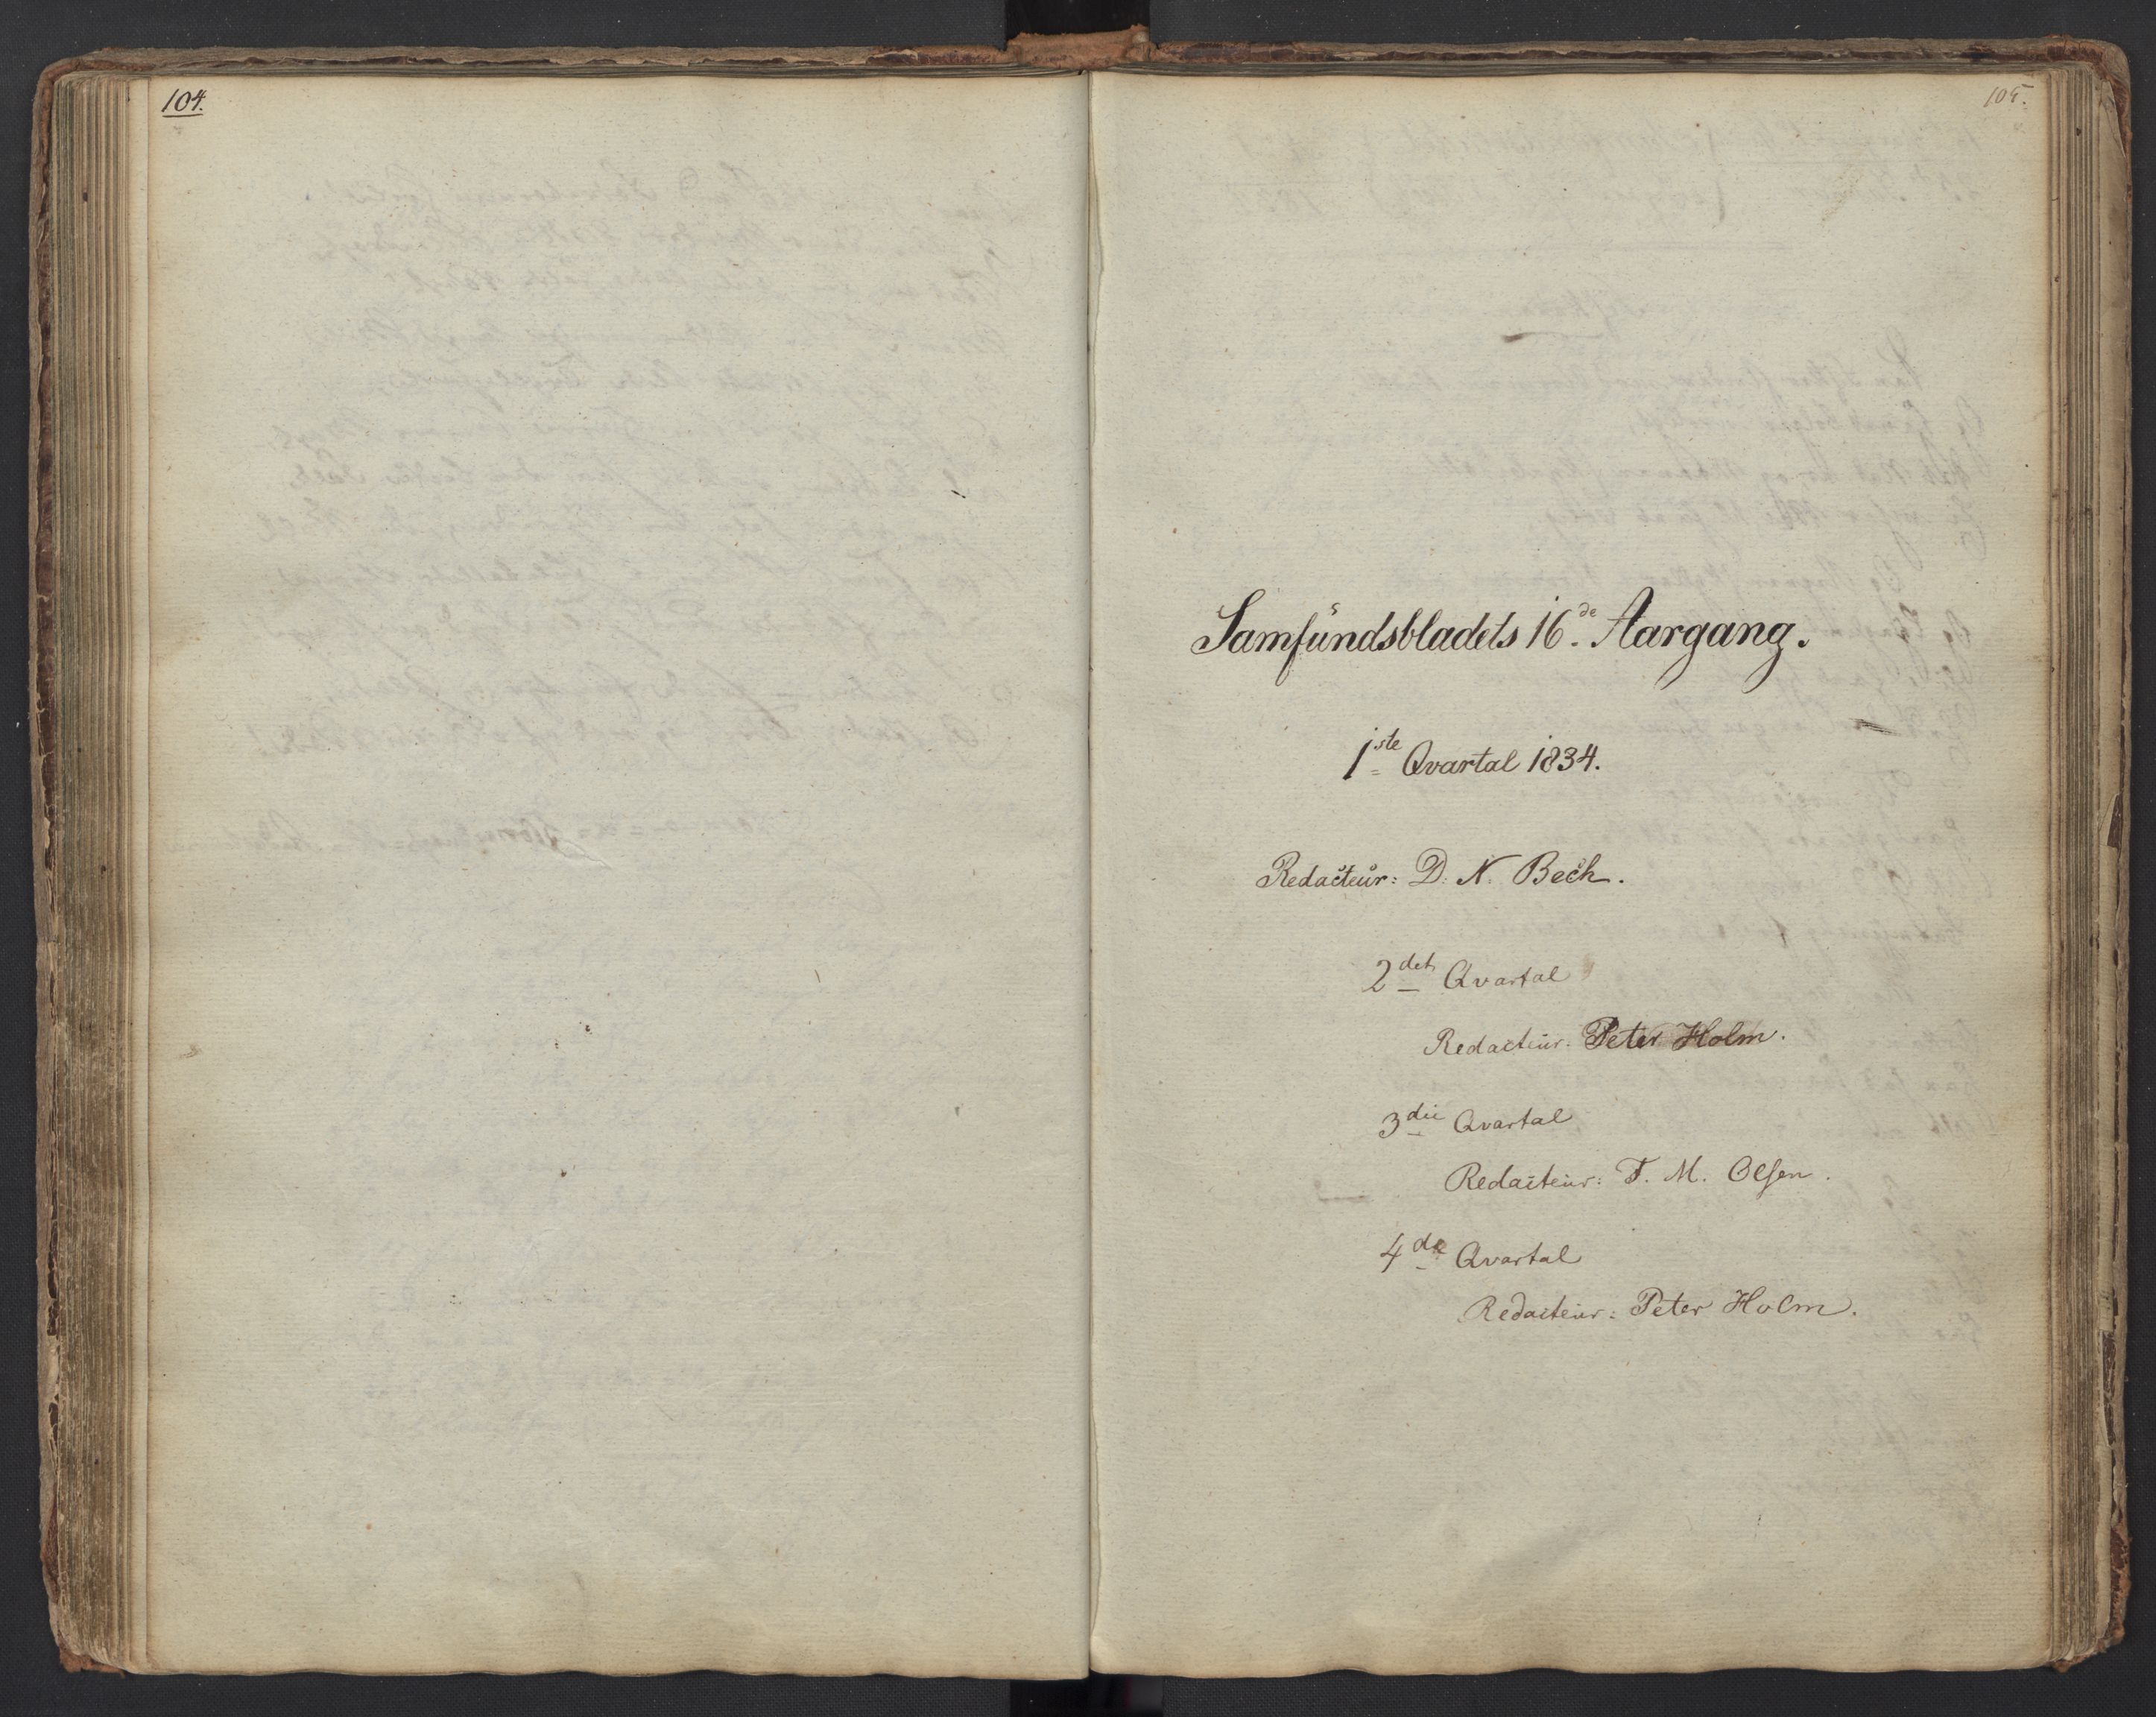 104.
105.
Samfundsbladets 16de Aargang.
1ste Qvartal 1834.
Redacteur: D. N. Bech.
2det Qvartal
Redacteur: Peter Holm.
3die Qvartal
Redacteur: T. M. Olsen.
4de Qvartal
Redacteur: Peter Holm.